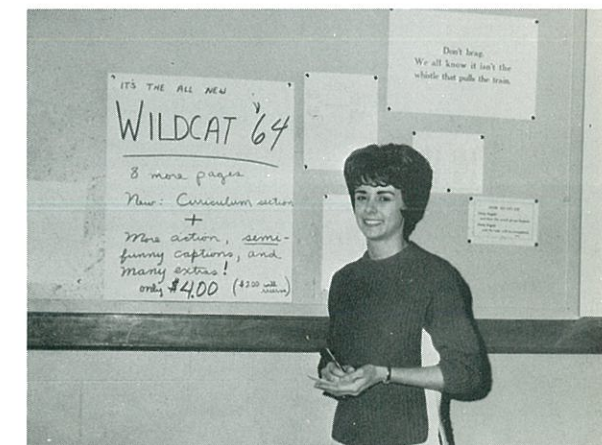 IT'S THE ALL NEW
WILDCAT '64
8 more pages
New: Curriculum section
+
More action, semi-
funny captions, and
many extras!
only $4.00 ($2.00 will
reserve)
Don't brag.
We all know it isn't the
whistle that pulls the train.